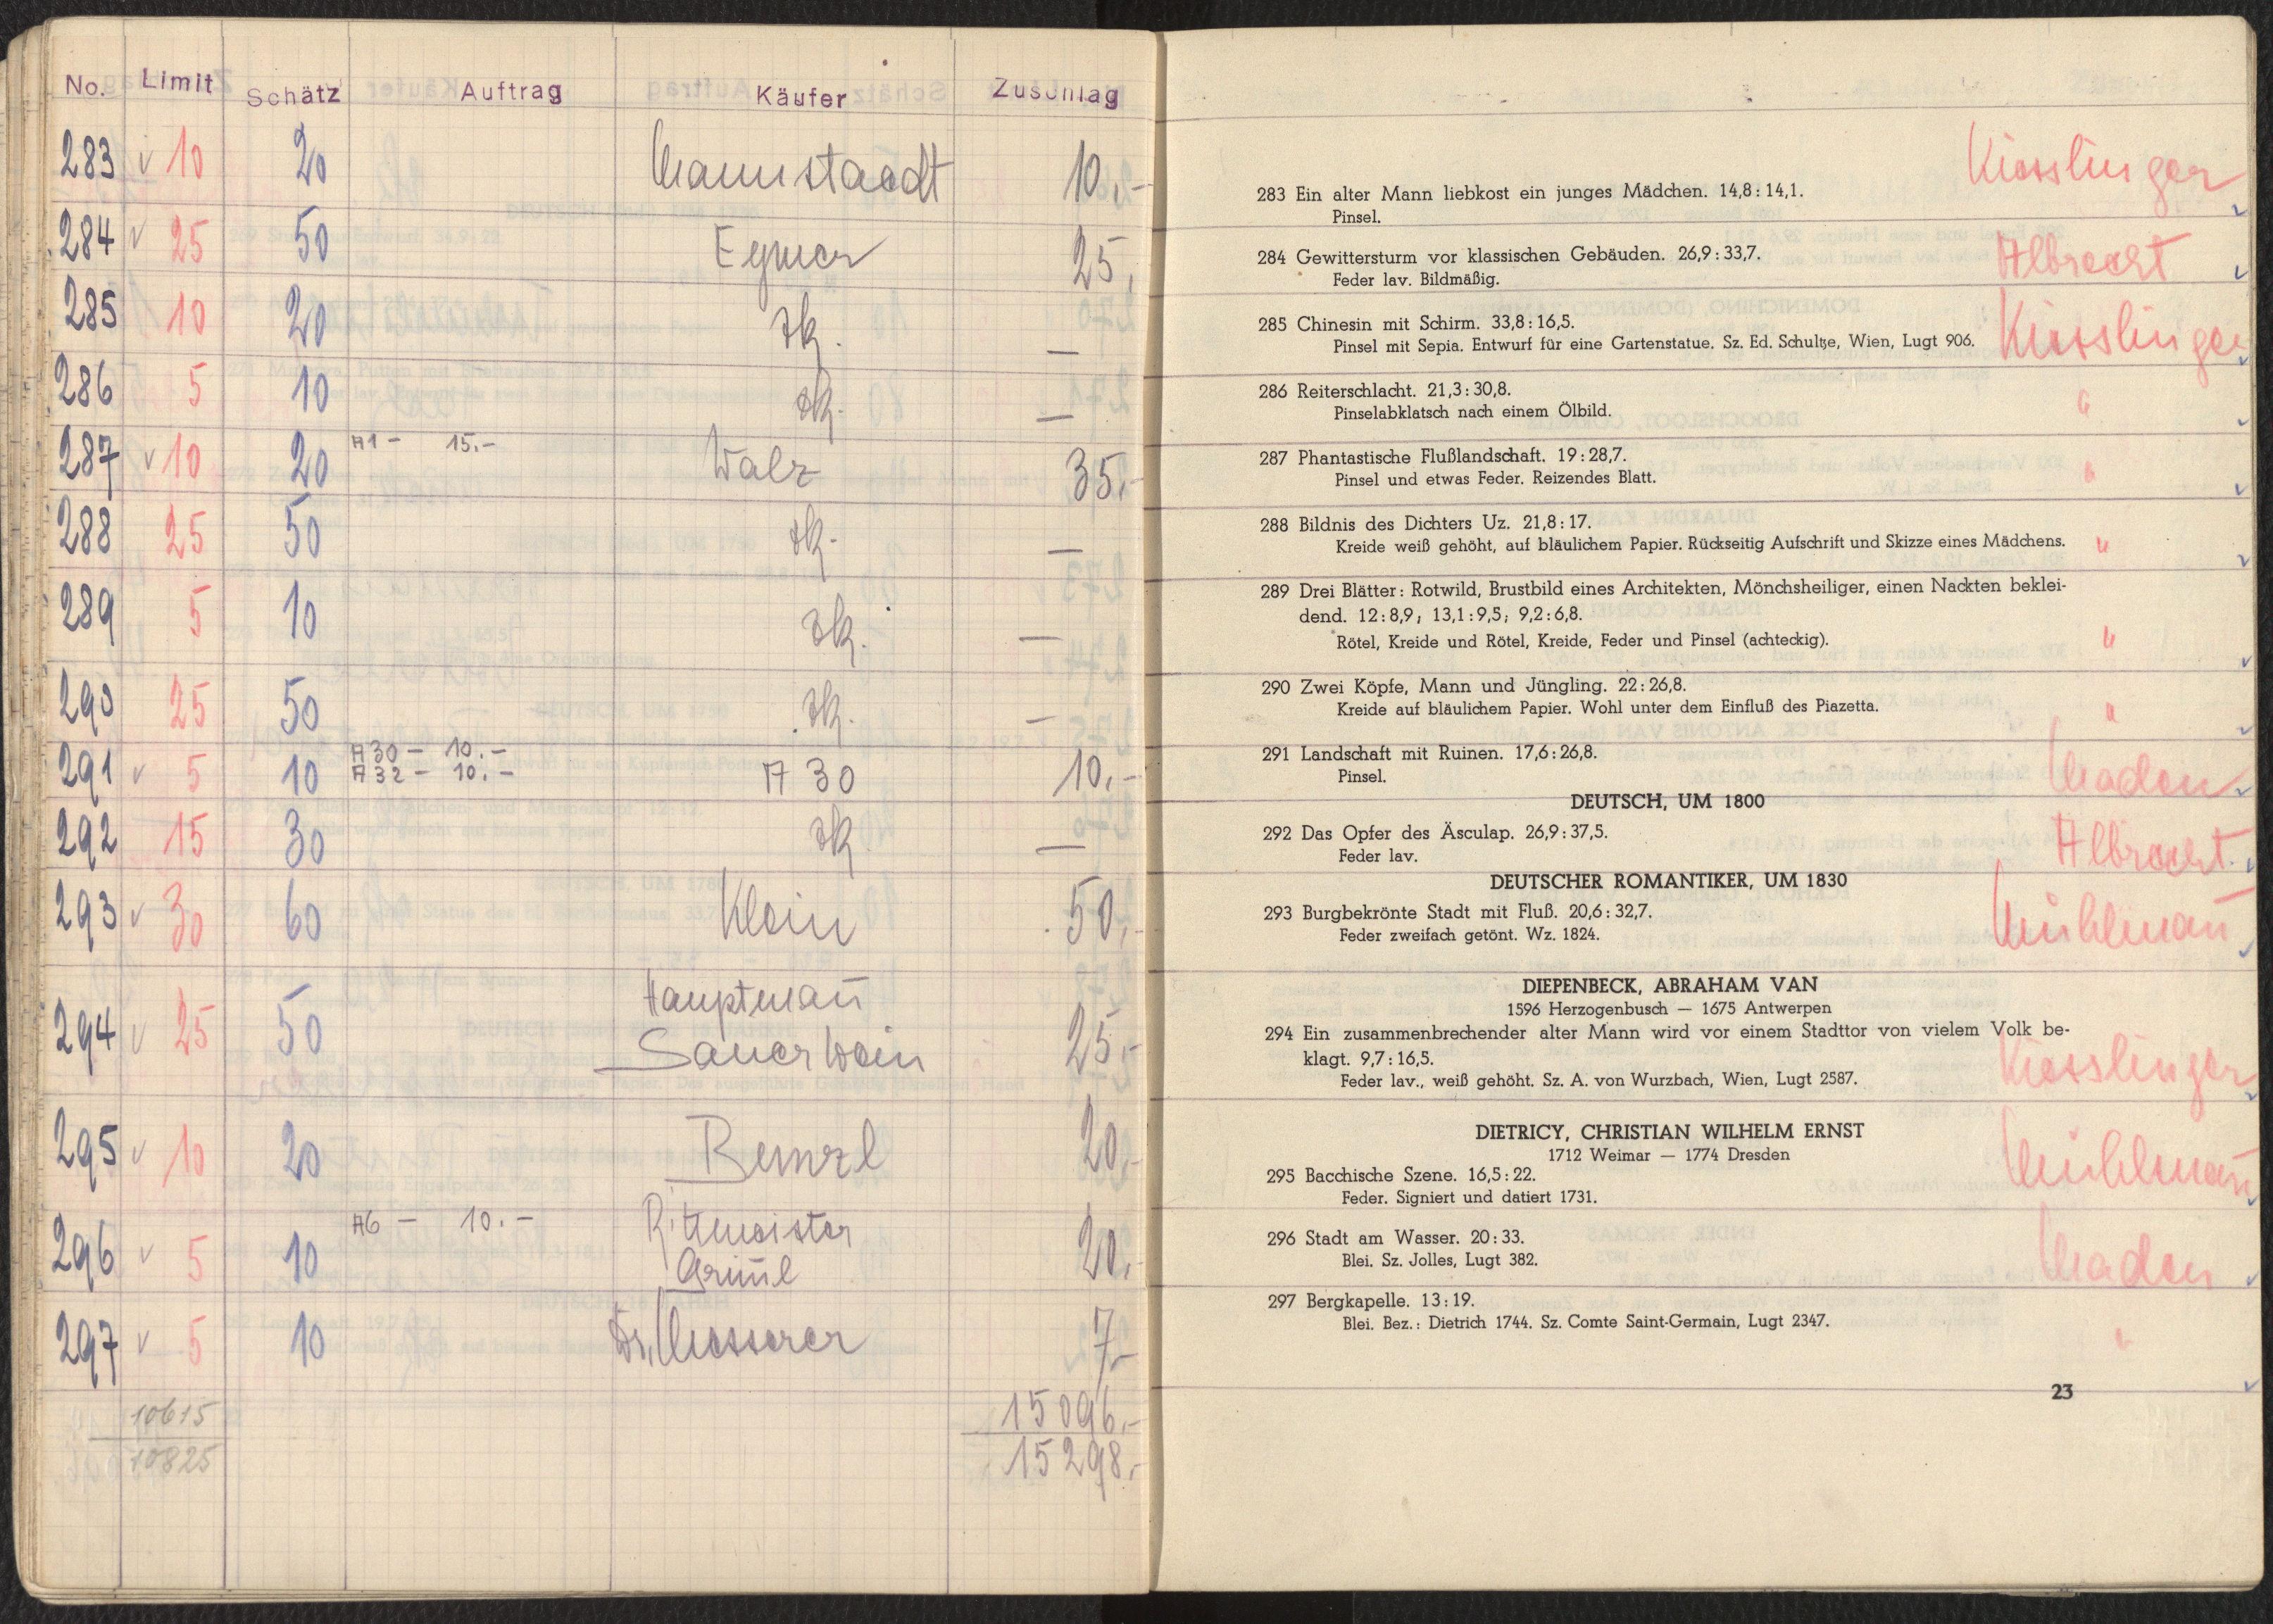 No. Limit Schätz Auftrag Käufer Zuschlag
283 v 10 20 Mannstaedt 10,-
284 v 25 50 Eymer 25,
285 10 20 zk. —
286 5 10 zk. —
287 v 10 20 A1 – 15.– Walz 35,-
288 25 50 zk. —
289 5 10 zk. —
290 25 50 zk. —
291 v 5 10 A 30 – 10.– A 30 10,-
A 32 – 10.–
292 15 30 zk —
293 v 30 60 Klein 50,-
294 v 25 50 Hauptmañ
Sauerwein 25,-
295 v 10 20 20,-
296 v 5 10 A6 – 10.– Rittmeister 20,-
297 v 5 10 Dr. Messerer 7,-
10615 15096,-
10825 15298,-
Kiesslinger
283 Ein alter Mann liebkost ein junges Mädchen. 14,8 : 14,1.
Pinsel.
284 Gewittersturm vor klassischen Gebäuden. 26,9 : 33,7. Albrecht
Feder lav. Bildmäßig.
285 Chinesin mit Schirm. 33,8 : 16,5. Kiesslinger
Pinsel mit Sepia. Entwurf für eine Gartenstatue. Sz. Ed. Schultze, Wien, Lugt 906.
286 Reiterschlacht. 21,3 : 30,8. "
Pinselabklatsch nach einem Ölbild.
287 Phantastische Flußlandschaft. 19 : 28,7. "
Pinsel und etwas Feder. Reizendes Blatt.
288 Bildnis des Dichters Uz. 21,8 : 17.
Kreide weiß gehöht, auf bläulichem Papier. Rückseitig Aufschrift und Skizze eines Mädchens. "
289 Drei Blätter: Rotwild, Brustbild eines Architekten, Mönchsheiliger, einen Nackten beklei-
dend. 12 : 8,9; 13,1 : 9,5; 9,2 : 6,8.
Rötel, Kreide und Rötel, Kreide, Feder und Pinsel (achteckig). "
290 Zwei Köpfe, Mann und Jüngling. 22 : 26,8.
Kreide auf bläulichem Papier. Wohl unter dem Einfluß des Piazetta. "
291 Landschaft mit Ruinen. 17,6 : 26,8. Maden
Pinsel.
DEUTSCH, UM 1800
292 Das Opfer des Äsculap. 26,9 : 37,5. Albrecht
Feder lav.
DEUTSCHER ROMANTIKER, UM 1830
293 Burgbekrönte Stadt mit Fluß. 20,6 : 32,7. Mühlmañ
Feder zweifach getönt. Wz. 1824.
DIEPENBECK, ABRAHAM VAN
1596 Herzogenbusch — 1675 Antwerpen
294 Ein zusammenbrechender alter Mann wird vor einem Stadttor von vielem Volk be-
klagt. 9,7 : 16,5. Kiesslinger
Feder lav., weiß gehöht. Sz. A. von Wurzbach, Wien, Lugt 2587.
DIETRICY, CHRISTIAN WILHELM ERNST
1712 Weimar — 1774 Dresden Mühlmañ
295 Bacchische Szene. 16,5 : 22.
Feder. Signiert und datiert 1731.
296 Stadt am Wasser. 20 : 33. Maden
Blei. Sz. Jolles, Lugt 382.
297 Bergkapelle. 13 : 19.
Blei. Bez.: Dietrich 1744. Sz. Comte Saint-Germain, Lugt 2347. "
23